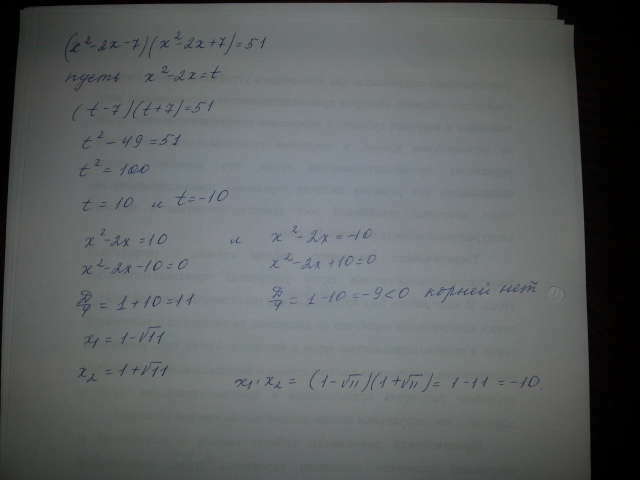 (x²-2x-7)(x²-2x+7)=51
пусть x²-2x=t
(t-7)(t+7)=51
t²-49=51
t²=100
t=10 и t=-10
x²-2x=10 и x²-2x=-10
x²-2x-10=0 x²-2x+10=0
Д/4 = 1+10=11 Д/4 = 1-10=-9<0 корней нет
x₁=1-√11
x₂=1+√11
x₁·x₂ = (1-√11)(1+√11)=1-11=-10.